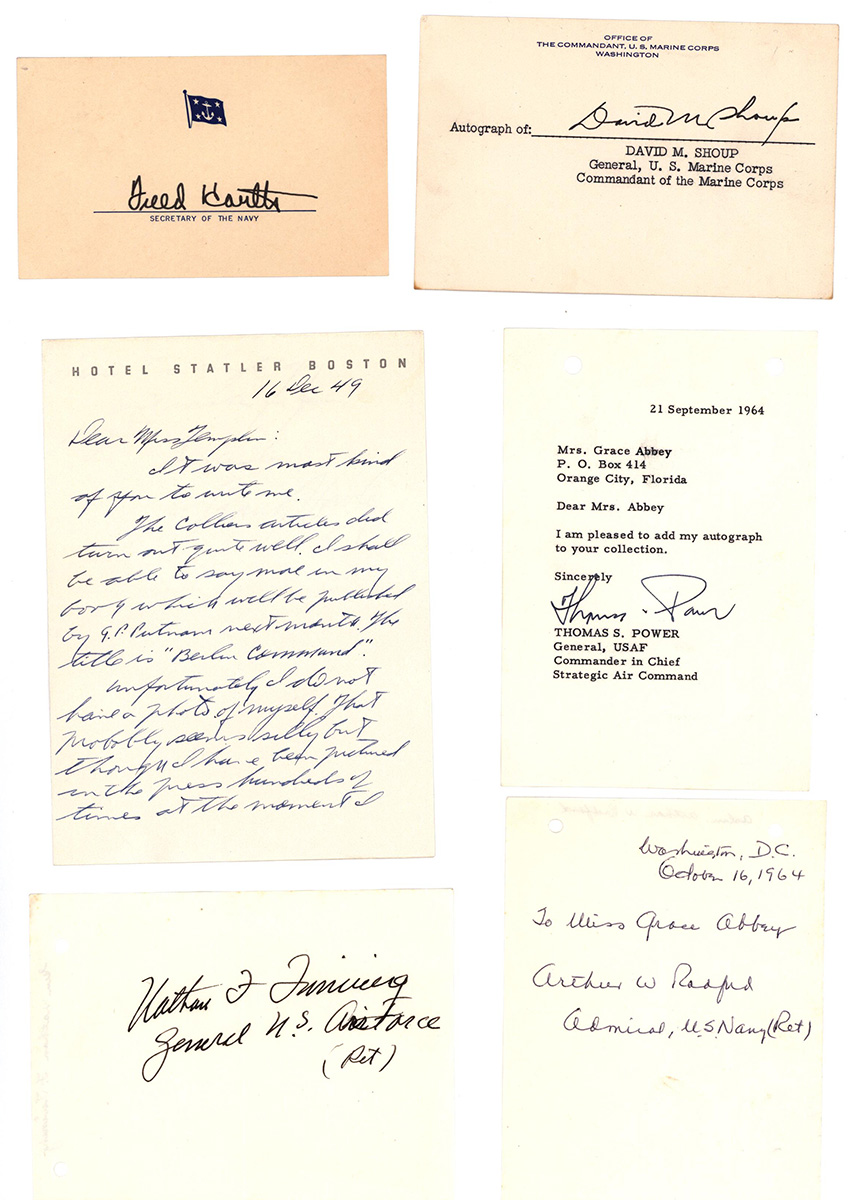 Fred Korth
SECRETARY OF THE NAVY
OFFICE OF
THE COMMANDANT, U. S. MARINE CORPS
WASHINGTON
Autograph of: David M Shoup
DAVID M. SHOUP
General, U. S. Marine Corps
Commandant of the Marine Corps
HOTEL STATLER BOSTON
16 Dec 49
Dear Miss Templin:
It was most kind
of you to write me.
The Colliers articles did
turn out quite well. I shall
be able to say more in my
book which will be published
by G.P. Putnam next month. The
title is "Berlin Command".
Unfortunately I do not
have a photo of myself. That
probably seems silly but
though I have been pictured
in the press hundreds of
times at the moment I
21 September 1964
Mrs. Grace Abbey
P. O. Box 414
Orange City, Florida
Dear Mrs. Abbey
I am pleased to add my autograph
to your collection.
Sincerely
Thomas S. Power
THOMAS S. POWER
General, USAF
Commander in Chief
Strategic Air Command
Nathan F Twining
General U.S. Air Force
(Ret)
Washington, D.C.
October 16, 1964
To Miss Grace Abbey
Arthur W Radford
Admiral, U.S. Navy (Ret)